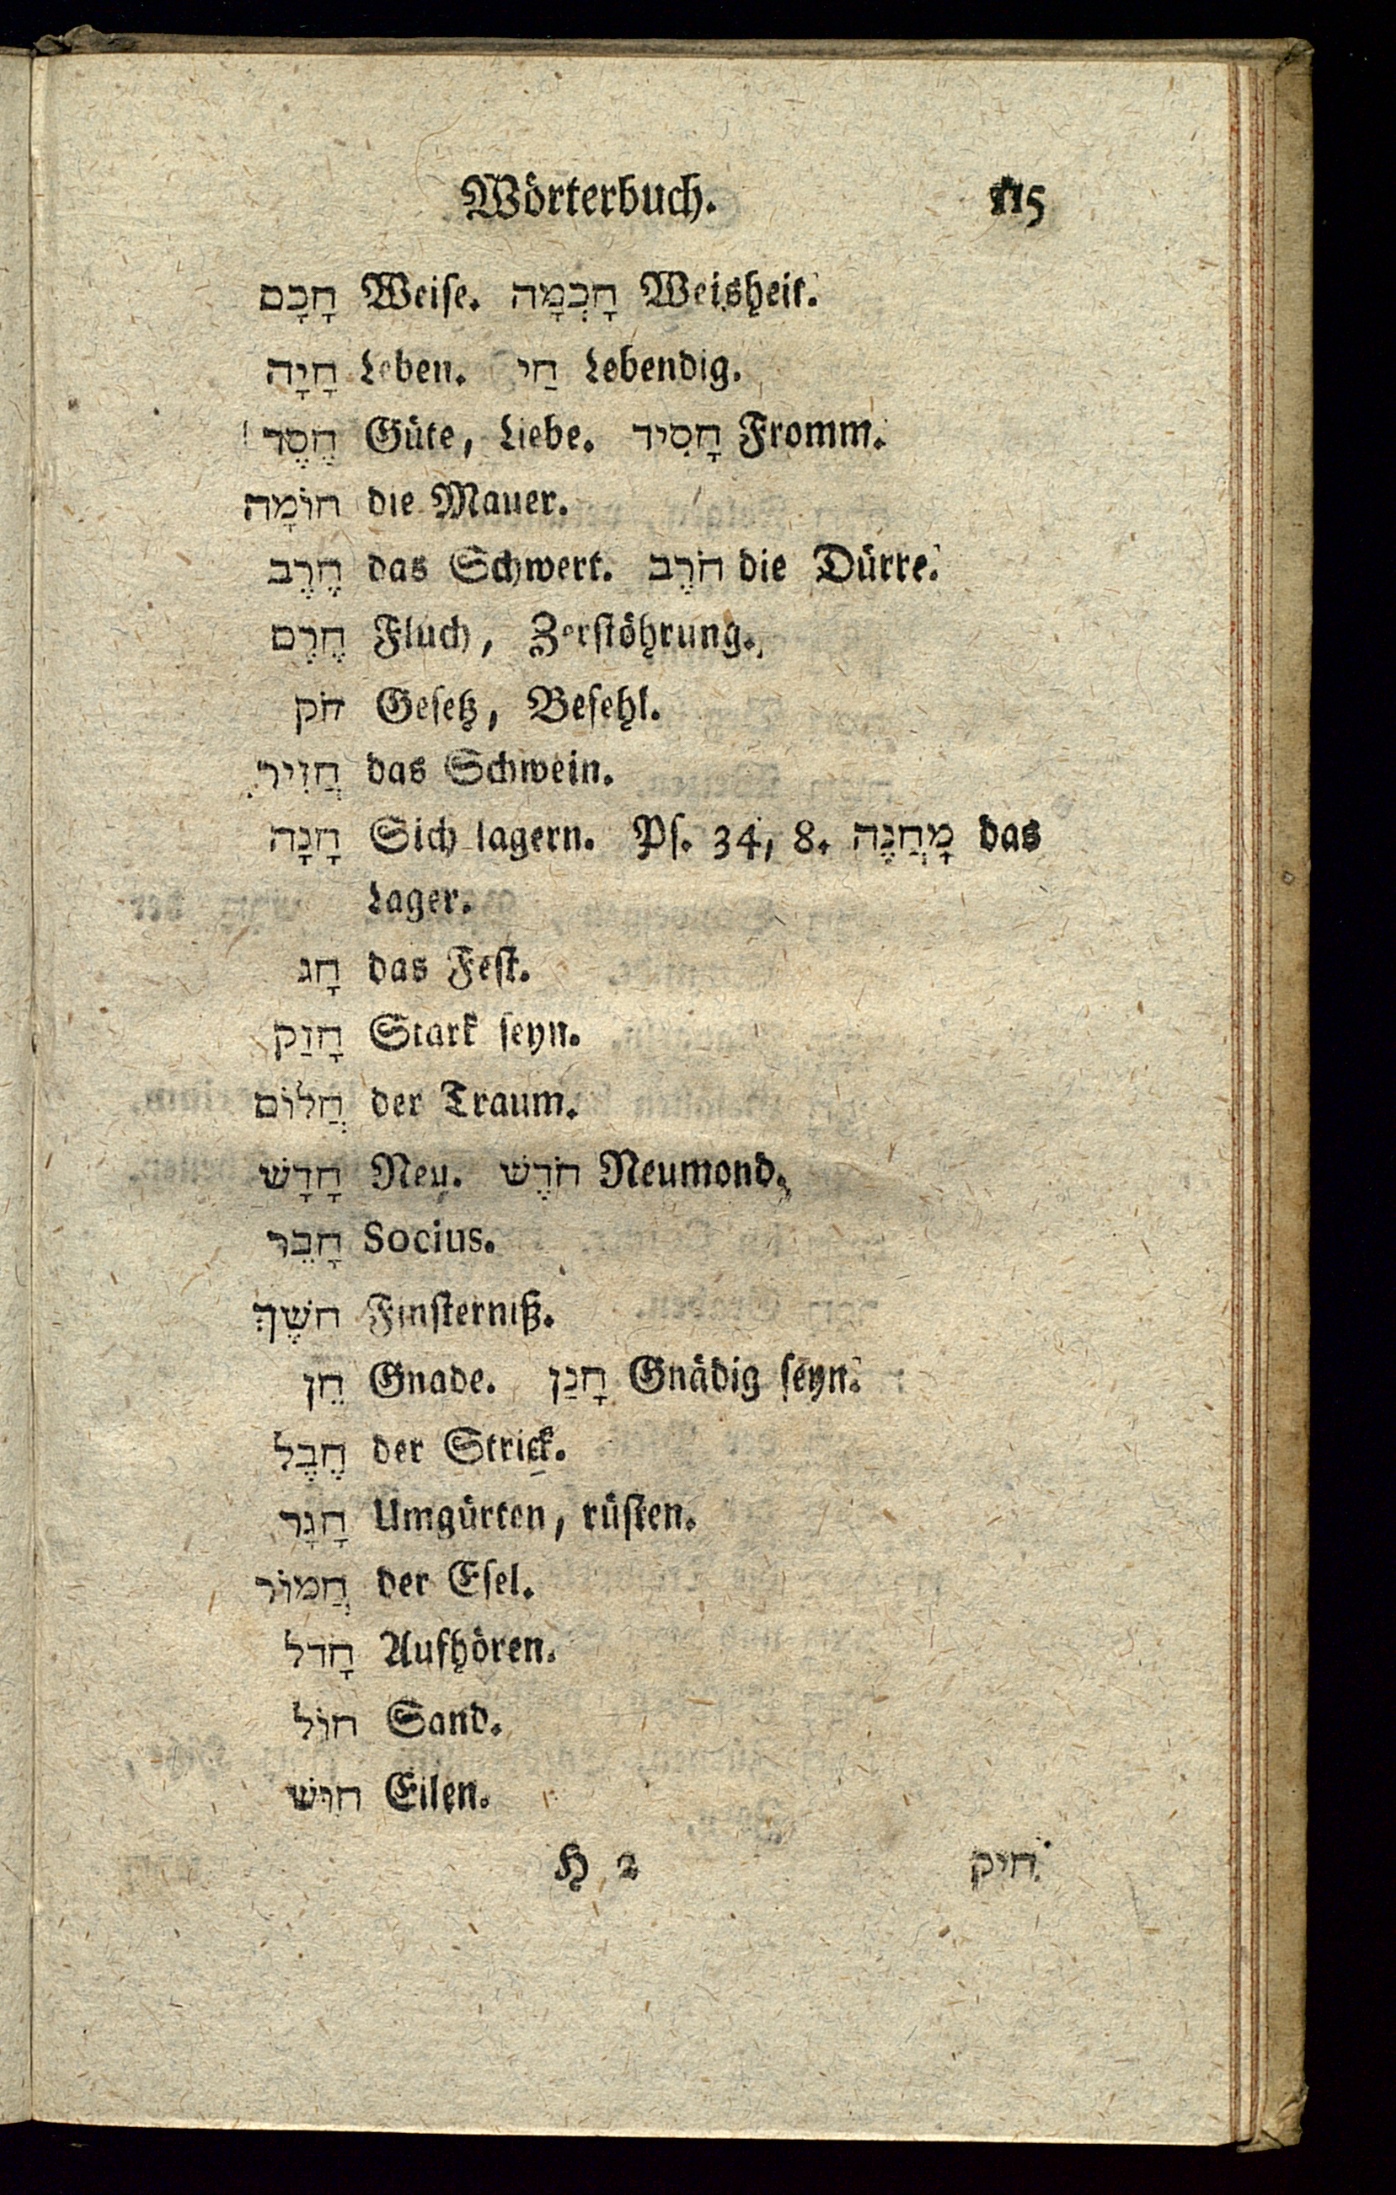 Wörterbuch. 115
חָכָם Weise. חָכְמָה Weisheit.
חָיָה Leben. חַי Lebendig.
חֶסֶד Güte, Liebe. חָסִיד Fromm.
חוֹמָה die Mauer.
חֶרֶב das Schwert. חֹרֶב die Dürre.
חֶרֶם Fluch, Zerstöhrung.
חֹק Gesetz, Befehl.
חֲזִיר das Schwein.
חָנָה Sich lagern. Ps. 34, 8. מָחֲנֶה das
Lager.
חָג das Fest.
חָזַק Stark seyn.
חֲלוֹם der Traum.
חָדָשׁ Neu. חֹדֶשׁ Neumond.
חָבֵר Socius.
חשֶׁךְ Finsterniß.
חֵן Gnade. חָנַן Gnädig seyn.
חֶבֶל der Strick.
חָגָר Umgürten, rüsten.
חֲמוֹר der Esel.
חָדל Aufhören.
חוֹל Sand.
חוּשׁ Eilen.
H 2 חיק